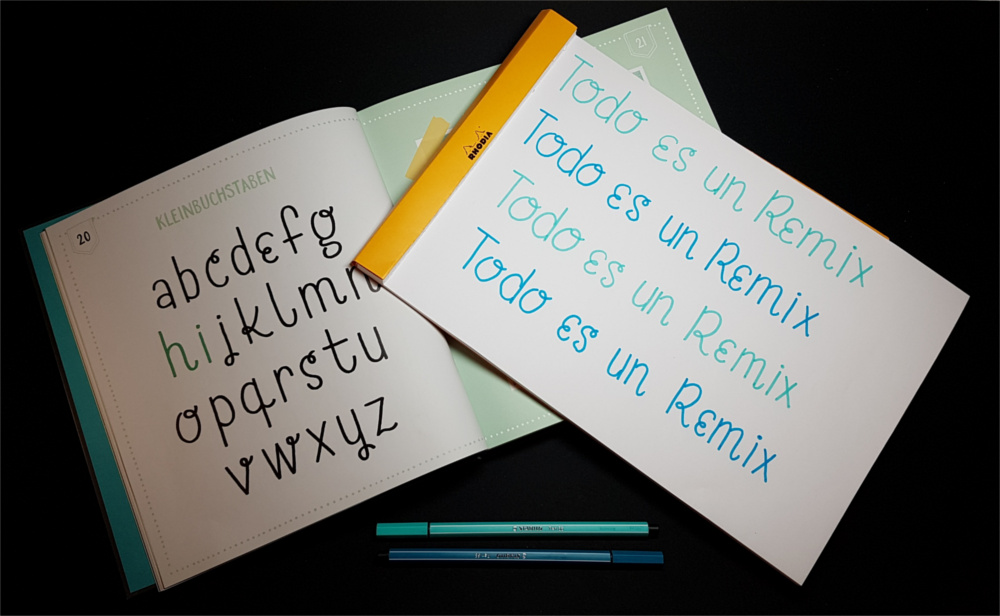 20
KLEINBUCHSTABEN
abcdefg
hijklmn
opqrstu
vwxyz
21
RHODIA
Todo es un Remix
Todo es un Remix
Todo es un Remix
Todo es un Remix